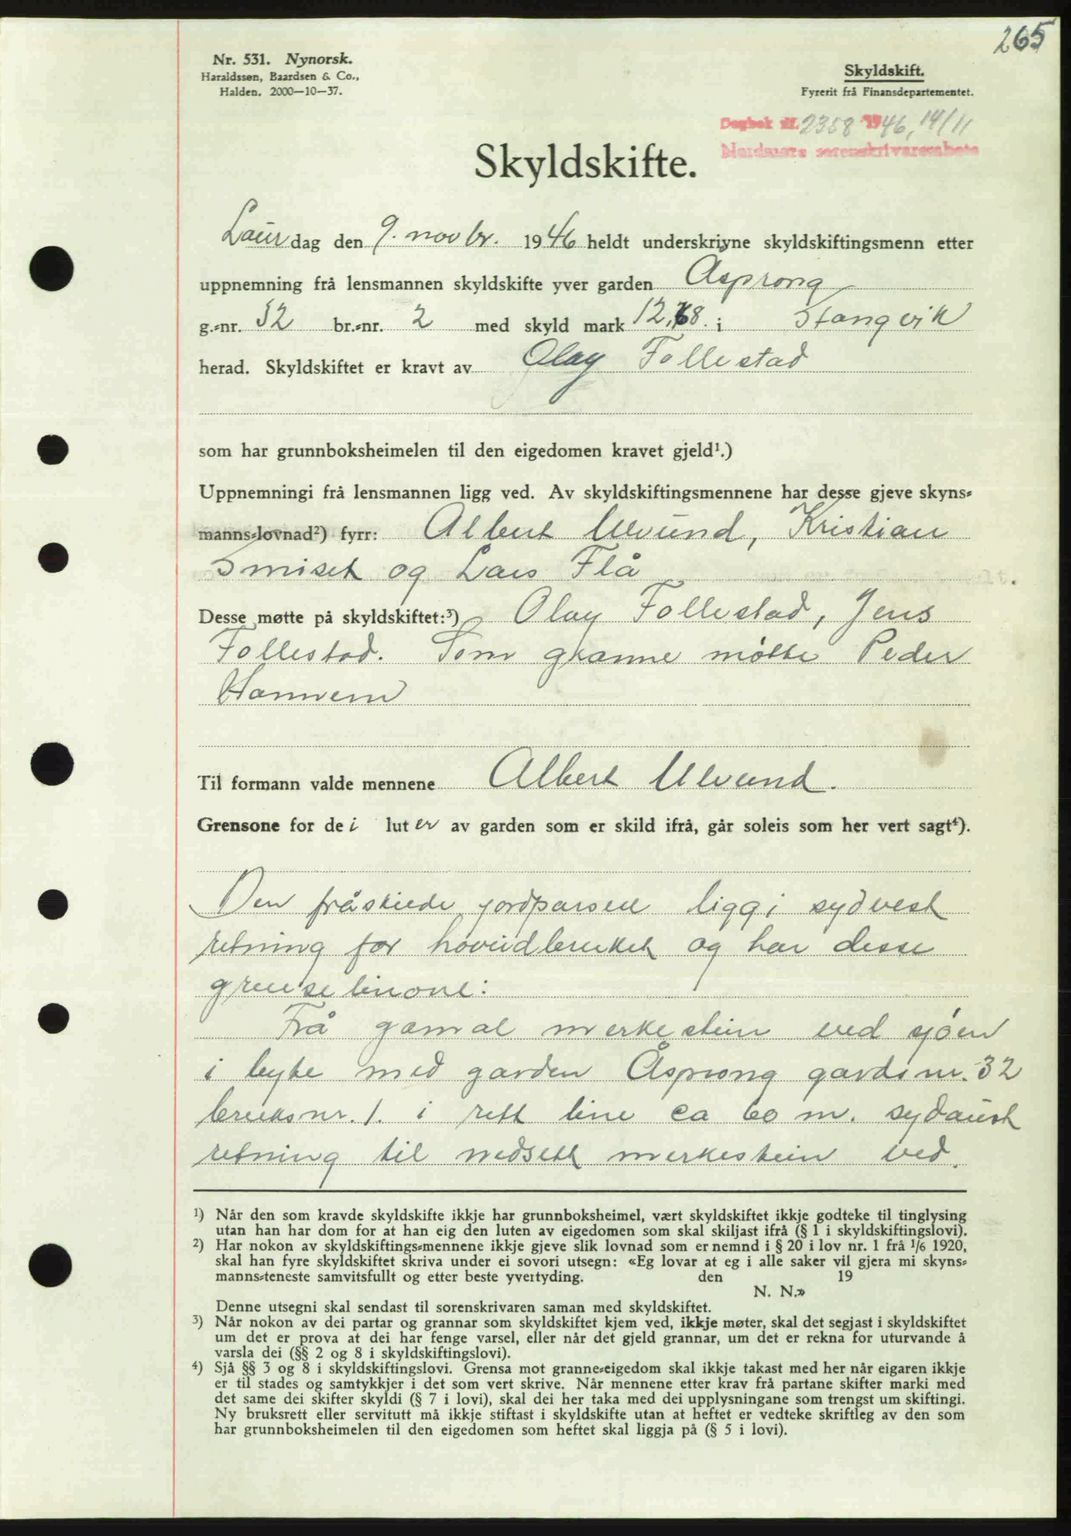 265
Nr. 531. Nynorsk.
Haraldssen, Baardsen & Co.,
Halden. 2000—10—37.
Skyldskift.
Fyrerit frå Finansdepartementet.
Dagbok nr. 2358 1946, 14/11
Nordmøre sorenskrivarembete
Skyldskifte.
Laurdag den 9. novbr. 1946 heldt underskrivne skyldskiftingsmenn etter
uppnemning frå lensmannen skyldskifte yver garden Åsprong
g.-nr. 32 br.-nr. 2 med skyld mark 12,68. i Stangvik
herad. Skyldskiftet er kravt av Olav Follestad
som har grunnboksheimelen til den eigedomen kravet gjeld¹.)
Uppnemningi frå lensmannen ligg ved. Av skyldskiftingsmennene har desse gjeve skyns-
manns-lovnad²) fyrr: Albert Ulvund, Kristian
Smiset og Lars Flå
Desse møtte på skyldskiftet:³) Olav Follestad, Jens
Follestad. Som granne møtte Peder
Hannem
Til formann valde mennene Albert Ulvund.
Grensone for dei luter av garden som er skild ifrå, går soleis som her vert sagt⁴).
Den fråskilde jordparsell ligg i sydvest
retning for hovudbruket og har desse
grenselinone:
Frå gamal merkestein ved sjøen
i byte med garden Åsprong gardsnr. 32
bruksnr. 1. i rett line ca 60 m. sydaust
retning til nedsett merkestein ved
¹) Når den som kravde skyldskifte ikkje har grunnboksheimel, vært skyldskiftet ikkje godteke til tinglysing
utan han har dom for at han eig den luten av eigedomen som skal skiljast ifrå (§ 1 i skyldskiftingslovi).
²) Har nokon av skyldskiftings-mennene ikkje gjeve slik lovnad som er nemnd i § 20 i lov nr. 1 frå 1/6 1920,
skal han fyre skyldskiftet skriva under ei sovori utsegn: «Eg lovar at eg i alle saker vil gjera mi skyns-
manns-teneste samvitsfullt og etter beste yvertyding. den 19
N. N.»
Denne utsegni skal sendast til sorenskrivaren saman med skyldskiftet.
³) Når nokon av dei partar og grannar som skyldskiftet kjem ved, ikkje møter, skal det segjast i skyldskiftet
um det er prova at dei har fenge varsel, eller når det gjeld grannar, um det er rekna for uturvande å
varsla dei (§§ 2 og 8 i skyldskiftingslovi).
⁴) Sjå §§ 3 og 8 i skyldskiftingslovi. Grensa mot granne-eigedom skal ikkje takast med her når eigaren ikkje
er til stades og samtykkjer i det som vert skrive. Når mennene etter krav frå partane skifter marki med
det same dei skifter skyldi (§ 7 i lovi), skal dei her taka med dei upplysningane som trengst um skiftingi.
Ny bruksrett eller servitutt må ikkje stiftast i skyldskifte utan at heftet er vedteke skriftleg av den som
har grunnboksheimelen til den eigedomen som heftet skal liggja på (§ 5 i lovi).